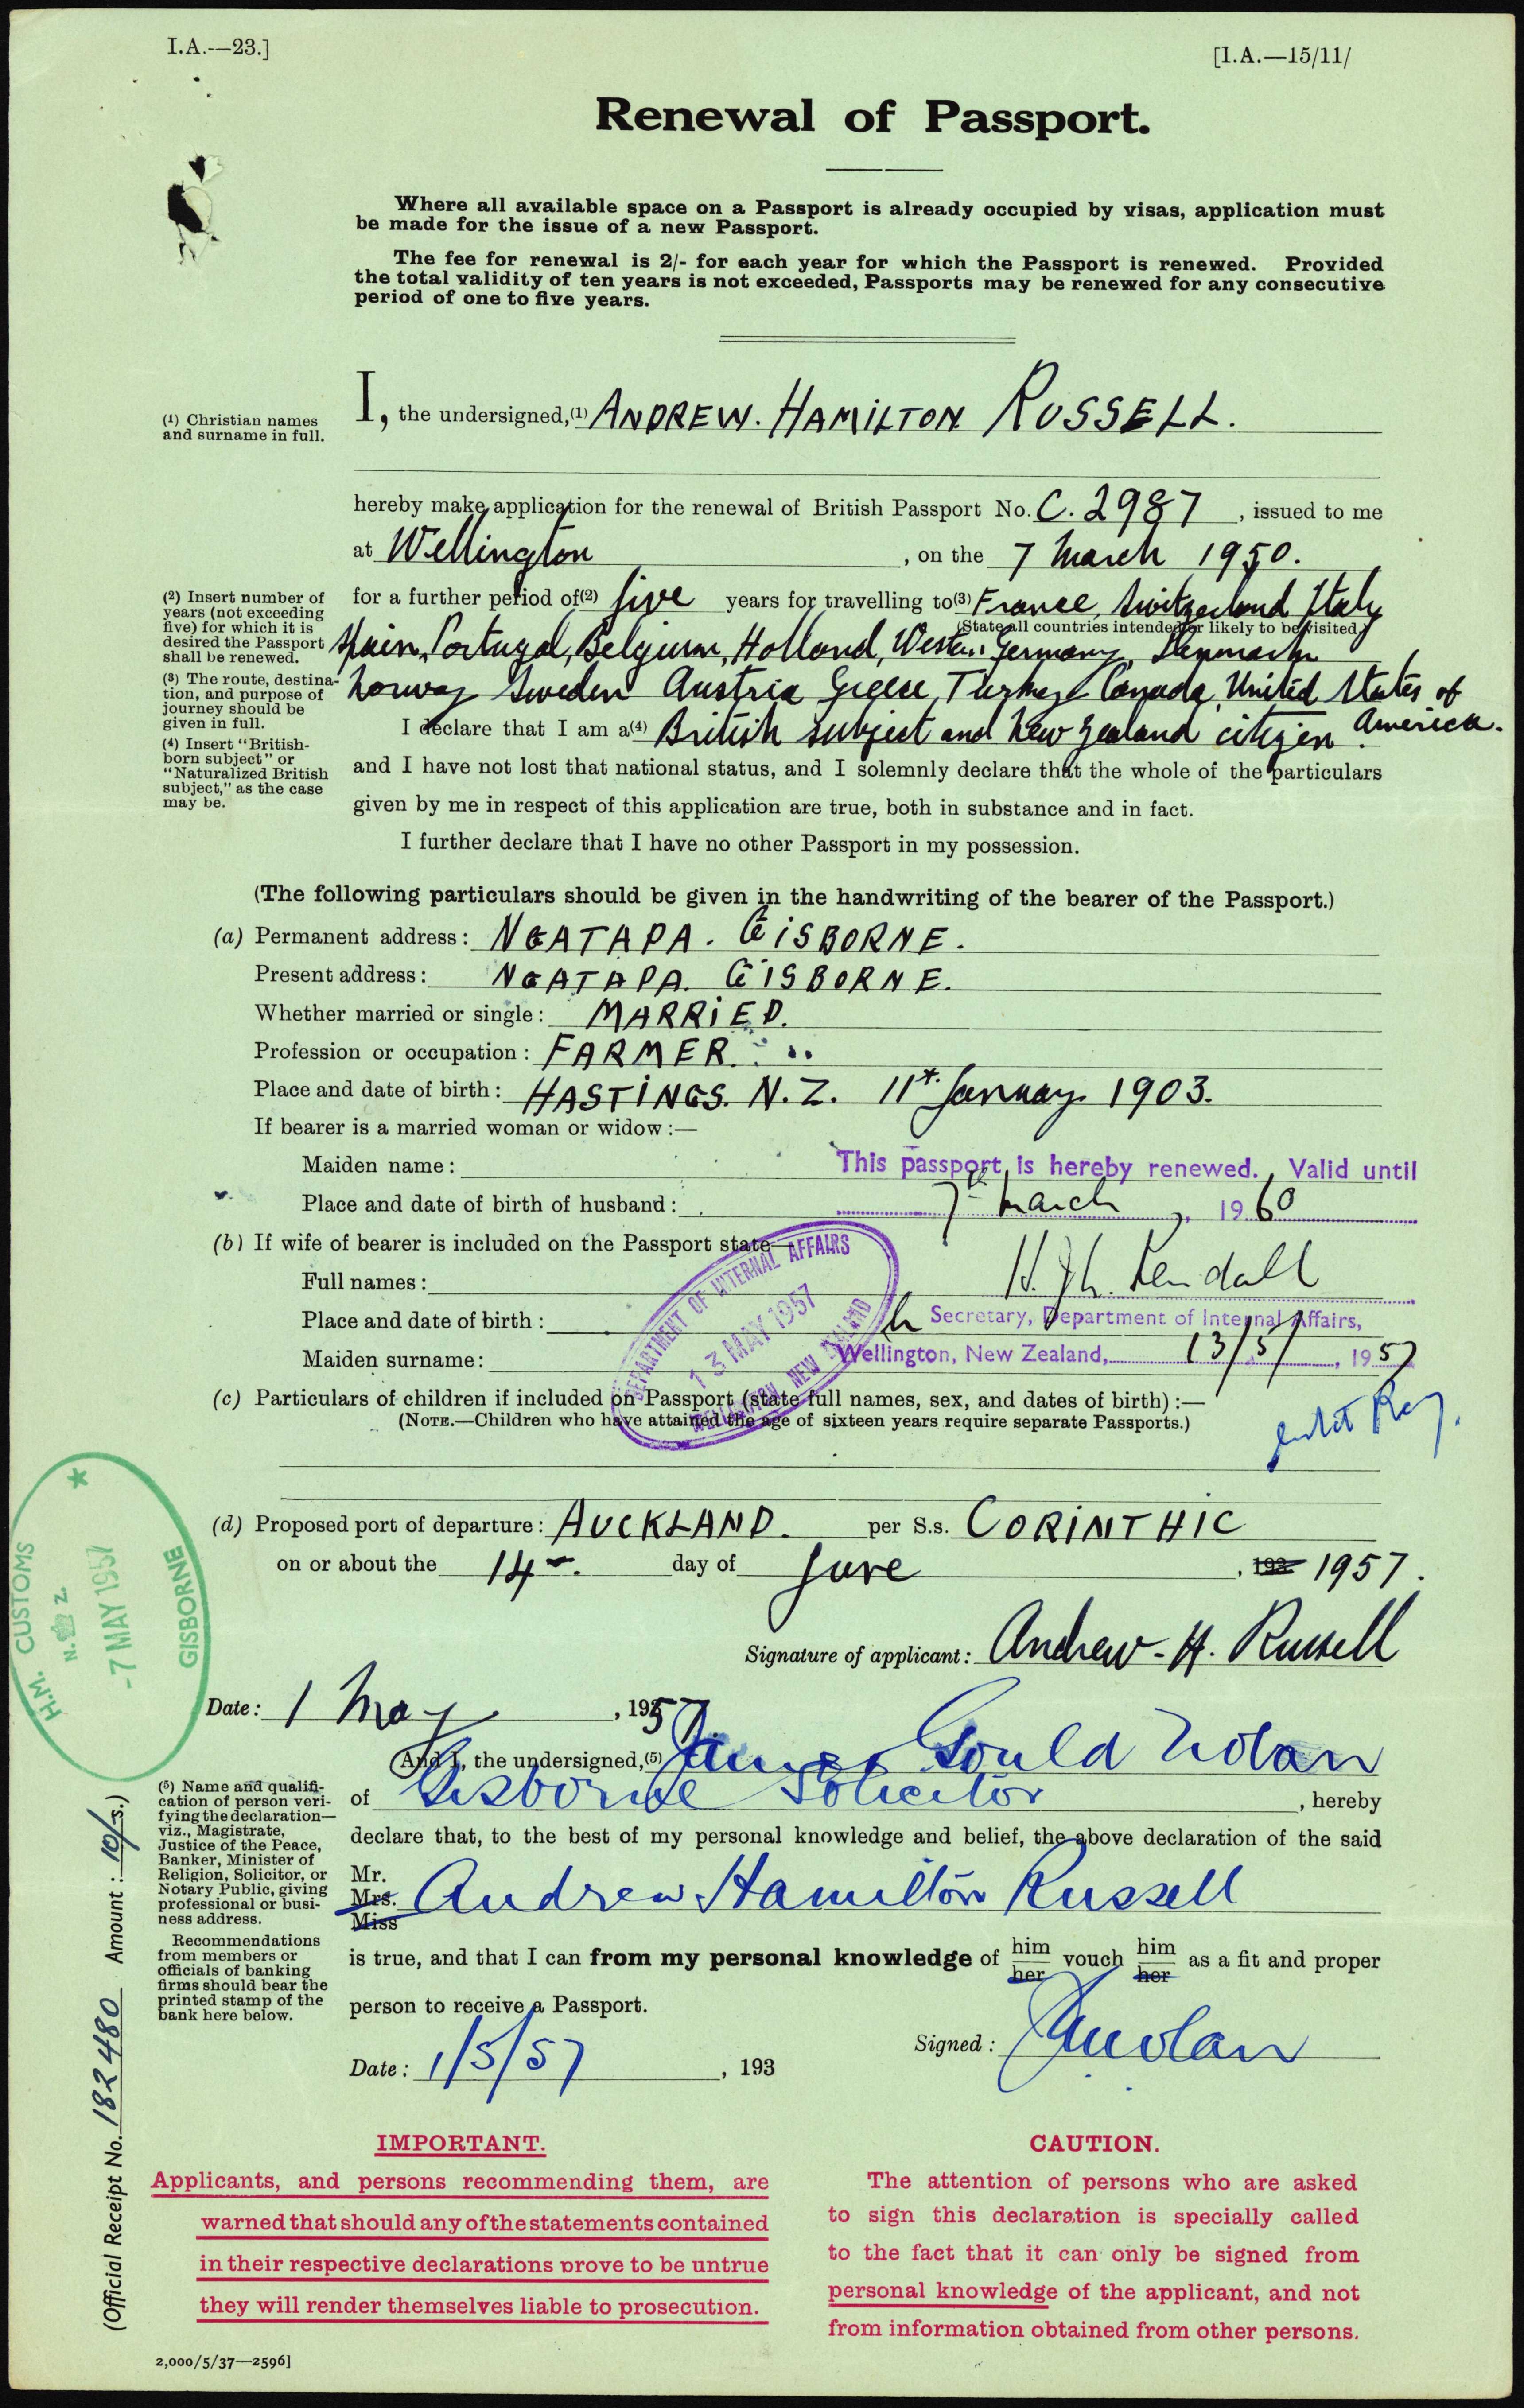 I.A.—23.]
[I.A.—15/11/
Renewal of Passport.
Where all available space on a Passport is already occupied by visas, application must
be made for the issue of a new Passport.
The fee for renewal is 2/- for each year for which the Passport is renewed. Provided
the total validity of ten years is not exceeded, Passports may be renewed for any consecutive
period of one to five years.
(1) Christian names
and surname in full.
I, the undersigned,(1) ANDREW. HAMILTON RUSSELL.
hereby make application for the renewal of British Passport No. C. 2987, issued to me
at Wellington, on the 7 March 1950.
(2) Insert number of
years (not exceeding
five) for which it is
desired the Passport
shall be renewed.
(3) The route, destina-
tion, and purpose of
journey should be
given in full.
(4) Insert "British-
born subject" or
"Naturalized British
subject," as the case
may be.
for a further period of(2) five years for travelling to(3) France, Switzerland Italy
(State all countries intended or likely to be visited.)
Spain, Portugal, Belgium, Holland, Western Germany, Denmark
Norway Sweden Austria Greece, Turkey Canada, United States of
America.
I declare that I am a(4) British subject and New Zealand citizen.
and I have not lost that national status, and I solemnly declare that the whole of the particulars
given by me in respect of this application are true, both in substance and in fact.
I further declare that I have no other Passport in my possession.
(The following particulars should be given in the handwriting of the bearer of the Passport.)
(a) Permanent address: NGATAPA. GISBORNE.
Present address: NGATAPA. GISBORNE.
Whether married or single: MARRIED.
Profession or occupation: FARMER.
Place and date of birth: HASTINGS. N.Z. 11th January 1903.
If bearer is a married woman or widow:—
Maiden name:
This passport is hereby renewed. Valid until
Place and date of birth of husband:
7th March, 1960
(b) If wife of bearer is included on the Passport state—
Full names:
Kendall
Place and date of birth:
Secretary, Department of Internal Affairs,
Maiden surname:
Wellington, New Zealand, 13/5/, 1957
DEPARTMENT OF INTERNAL AFFAIRS
13 MAY 1957
WELLINGTON, NEW ZEALAND
(c) Particulars of children if included on Passport (state full names, sex, and dates of birth):—
(NOTE.—Children who have attained the age of sixteen years require separate Passports.)
(d) Proposed port of departure: AUCKLAND. per S.s. CORINTHIC
on or about the 14 day of June, 193 1957.
H.M. CUSTOMS
N. Z.
-7 MAY 1957
GISBORNE
Signature of applicant: Andrew H. Russell
Date: 1 May, 1957.
And I, the undersigned,(5) James Gould Nolan
of Gisborne Solicitor, hereby
declare that, to the best of my personal knowledge and belief, the above declaration of the said
Mr.
Mrs. Andrew Hamilton Russell
Miss
is true, and that I can from my personal knowledge of him her vouch him her as a fit and proper
person to receive a Passport.
(5) Name and qualifi-
cation of person veri-
fying the declaration—
viz., Magistrate,
Justice of the Peace,
Banker, Minister of
Religion, Solicitor, or
Notary Public, giving
professional or busi-
ness address.
Recommendations
from members or
officials of banking
firms should bear the
printed stamp of the
bank here below.
Signed: JGNolan
Date: 1/5/57, 193
(Official Receipt No. 182480 Amount: 10/-s.)
IMPORTANT.
Applicants, and persons recommending them, are
warned that should any of the statements contained
in their respective declarations prove to be untrue
they will render themselves liable to prosecution.
CAUTION.
The attention of persons who are asked
to sign this declaration is specially called
to the fact that it can only be signed from
personal knowledge of the applicant, and not
from information obtained from other persons.
2,000/5/37—2596]